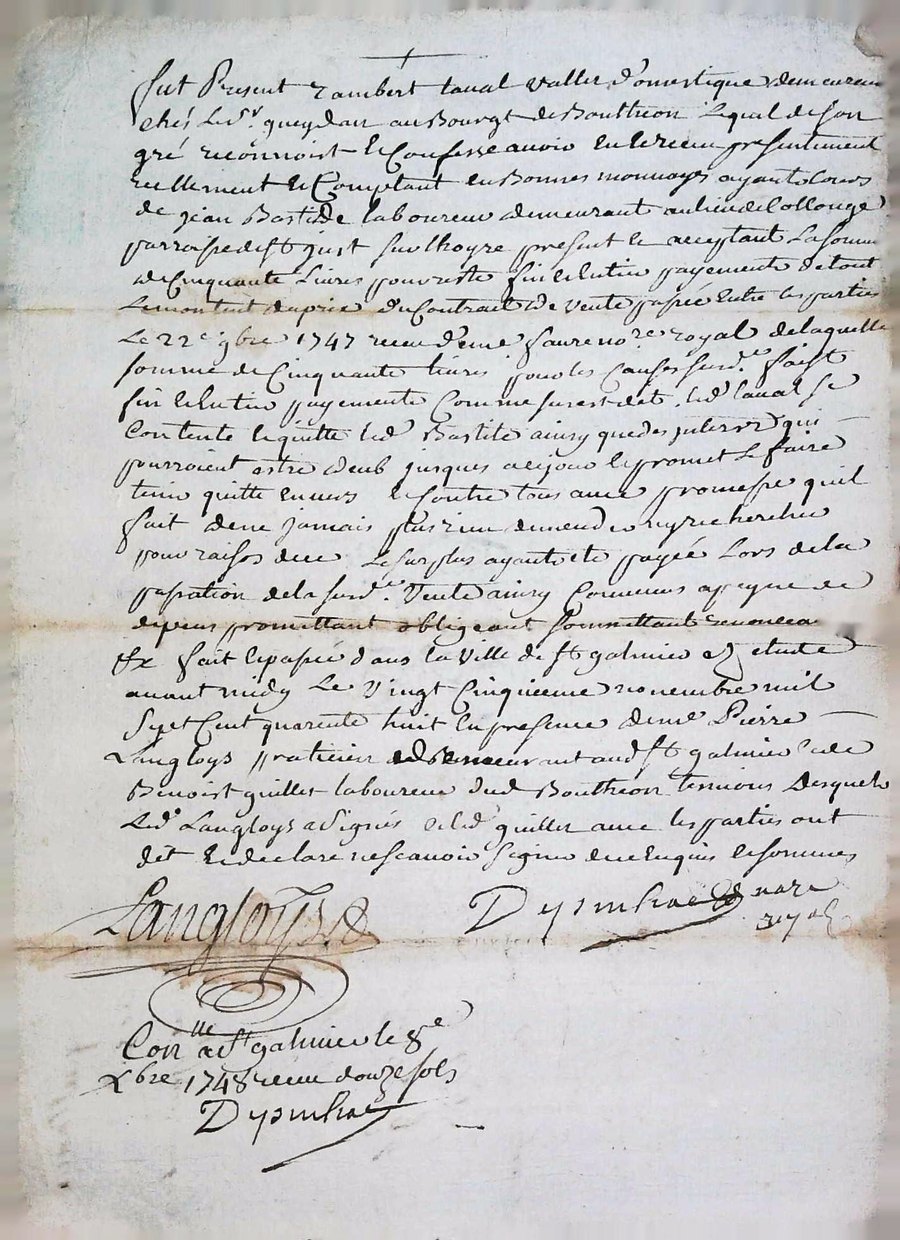 fut Present rambert laval vallet d'omestique demeurant
chés Led sr. queydan au Bourgt de Bouthéon Lequel de son
gré reconnoist & Confesse avoir eu & receu presentement
reellement & Comptant en Bonnes monnoyes ayants Cours
de jean Bastide laboureur demeurant au lieu de Collonge
parroisse de st just sur Lhoyre present & acceptant La somme
de Cinquante Livres pour reste fin & Entier payements de tout
Le montant du prix d'u Contract de vente passée Entre les parties
Le 22e 9bre 1747 receu d'eme faure nore. royal de laquelle
somme de Cinquante livres pour les Causes surd.es faist
fin & Entier payements Comme sus est dit led laval se
Contente & quitte led Bastide ainsy que des interest qui
pourroient estre deub jusques a ce jour & promet Le faire
tenir quitte envers & Contre tous avec promesse qu'il
fait de ne jamais plus rien demender ny rechercher
pour raison de ce Le surplus ayant été payée Lors de la
passation de la surd.e vente ainsy Convenus a peyne de
depens promettant obligeant soumettant renoncea
&x fait & passé dans la ville de st galmier Etude
avant midy Le vingt Cinquieme novembre mil
sept Cent quarente huit En presence de me Pierre
Langloys praticien demeurant aud st galmier & de
Benoist guillet laboureur dud Bouthéon temoins Desquels
Led. Langloys a signés & led guillet avec les parties ont
dit & declaré ne scavoir signer de ce Enquis & sommés
Langloys
royal
Conlle a st galmier le 8e
Xbre 1748 receu douze sols